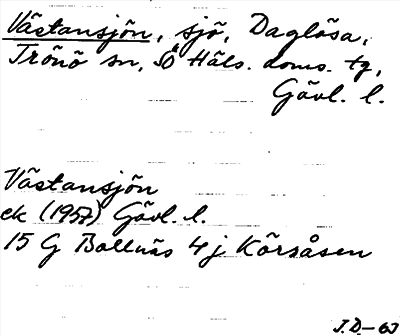 Västansjön, sjö, Daglösa,
Trönö sn, SÖ Häls. doms. tg,
Gävl. l.
Västansjön
ek (1957) Gävl. l.
15 G Bollnäs 4j Körsåsen
J.D.-63